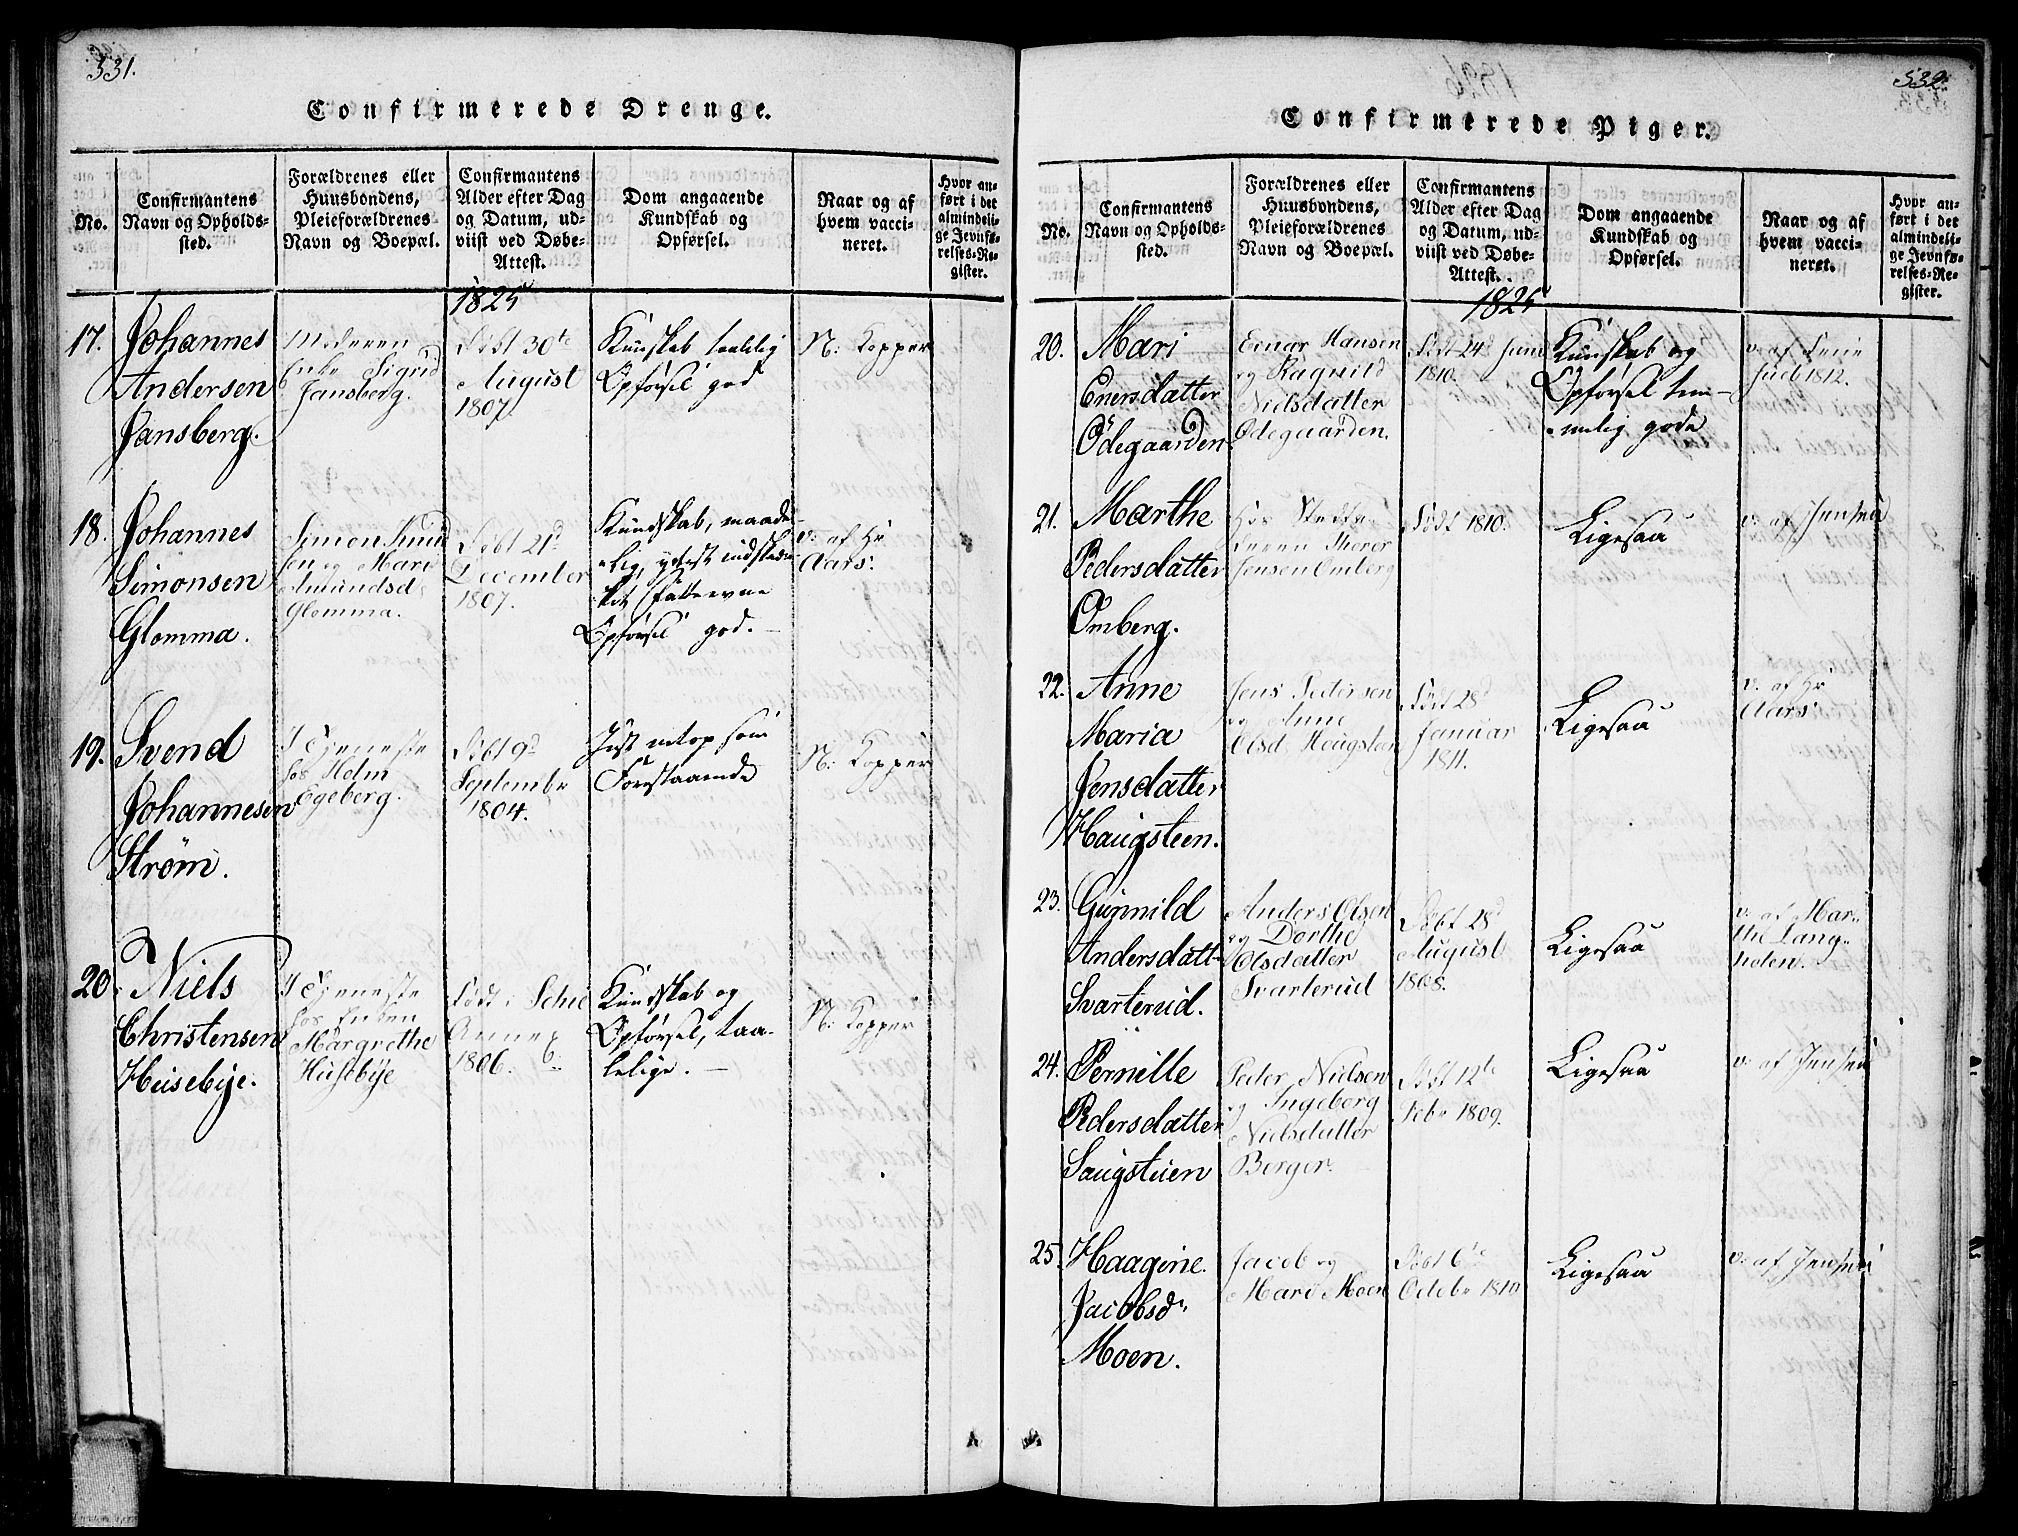 331.
Confirmerede Drenge.
No.
Confirmantens
Navn og Opholds-
sted.
Forældrenes eller
Huusbondens,
Pleieforældrenes
Navn og Boepæl.
Confirmantens
Alder efter Dag
og Datum, ud-
viist ved Døbe-
Attest.
Dom angaaende
Kundskab og
Opførsel.
Naar og af
hvem vacci-
neret.
Hvor an-
ført i det
almindeli-
ge Jevnfø-
relses-Re-
gister.
1825
17.
Johannes
Andersen
Jansberg.
Moderen
Enke Sigrid
Jansberg.
Født 30te
August
1807
Kundskab taalelig
Opførsel god
N: Kopper
18.
Johannes
Simonsen
Glomma.
Simon Knud
sen og Mari
Amundsd
Glomma.
Døbt 21d
December
1807.
Kundskab, maade-
lig, yderst indskræn
ket Fatteevne
Opførsel god.
v: af Hr
Aars:
19.
Svend
Johannesen
Strøm.
I Tjeneste
hos Holm
Egeberg.
Døbt 9d
Septembr
1804.
Just netop som
Forestaaende
N: Kopper
20.
Niels
Christensen
Husebye.
I Tjeneste
hos Enken
Margrethe
Husebye
Født i Schie
Annex
1806.
Kundskab og
Opførsel, taa-
lelige.
N: Kopper
532.
Confirmerede Piger.
No.
Confirmantens
Navn og Opholds-
sted.
Forældrenes eller
Huusbondens,
Pleieforældrenes
Navn og Boepæl.
Confirmantens
Alder efter Dag
og Datum, ud-
viist ved Døbe-
Attest.
Dom angaaende
Kundskab og
Opførsel.
Naar og af
hvem vacci-
neret.
Hvor an-
ført i det
almindeli-
ge Jevnfø-
relses-Re-
gister.
1825
20.
Mari
Enersdatter
Ödegaarden
Enar Hansen
og Ragnild
Nielsdatter
Ödegaarden.
Født 24d Juni
1810.
Kundskab og
Opførsel tem-
melig gode
v: af
1812.
21.
Marthe
Pedersdatter
Omberg.
Hos Stedfa-
deren Thorer
Jensen Omberg
Født 1810.
Ligesaa
v: af Jensen
22.
Anne
Maria
Jensdatter
Haugsteen.
Jens Pedersen
og Anne
Olsd Hougsteen
Født 28d
Januar
1811.
Ligesaa
v: af Hr
Aars
23.
Gunnild
Andersdatt
Svarterud.
Anders Olsen
og Dorthe
Olsdatter
Svarterud
Døbt 28d
August
1808.
Ligesaa
v: af Mar-
the Lang-
holen.
24.
Pernille
Pedersdatter
Saugstuen
Peder Nielsen
og Ingeborg
Nielsdatter
Berger
Døbt 12te
Febr 1809.
Ligesaa
v: af Jensen
25.
Haagine
Jacobsdr
Moen.
Jacob og
Mari Moen
Døbt 6te
Octobr 1810
Ligesaa
v: af Jensen